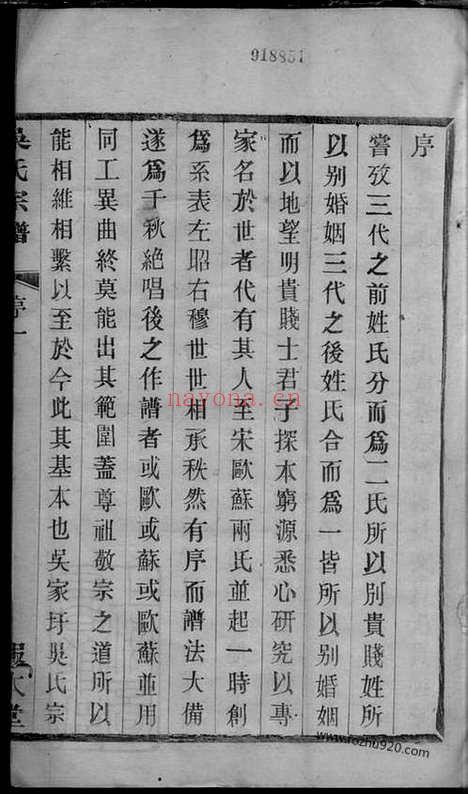 918851
序
嘗攷三代之前姓氏分而爲二氏所以别貴賤姓所
以别婚姻三代之後姓氏合而爲一皆所以别婚姻
而以地望明貴賤士君子探本窮源悉心研究以專
家名於世者代有其人至宋歐蘇兩氏並起一時創
爲系表左昭右穆世世相承秩然有序而譜法大備
遂爲千秋絶唱後之作譜者或歐或蘇或歐蘇並用
同工異曲終莫能出其範圍蓋尊祖敬宗之道所以
能相維相繫以至於今此其基本也吳家圩吳氏宗
吳氏宗譜
序一
堂
nayona.cn
www.rozhu920.com